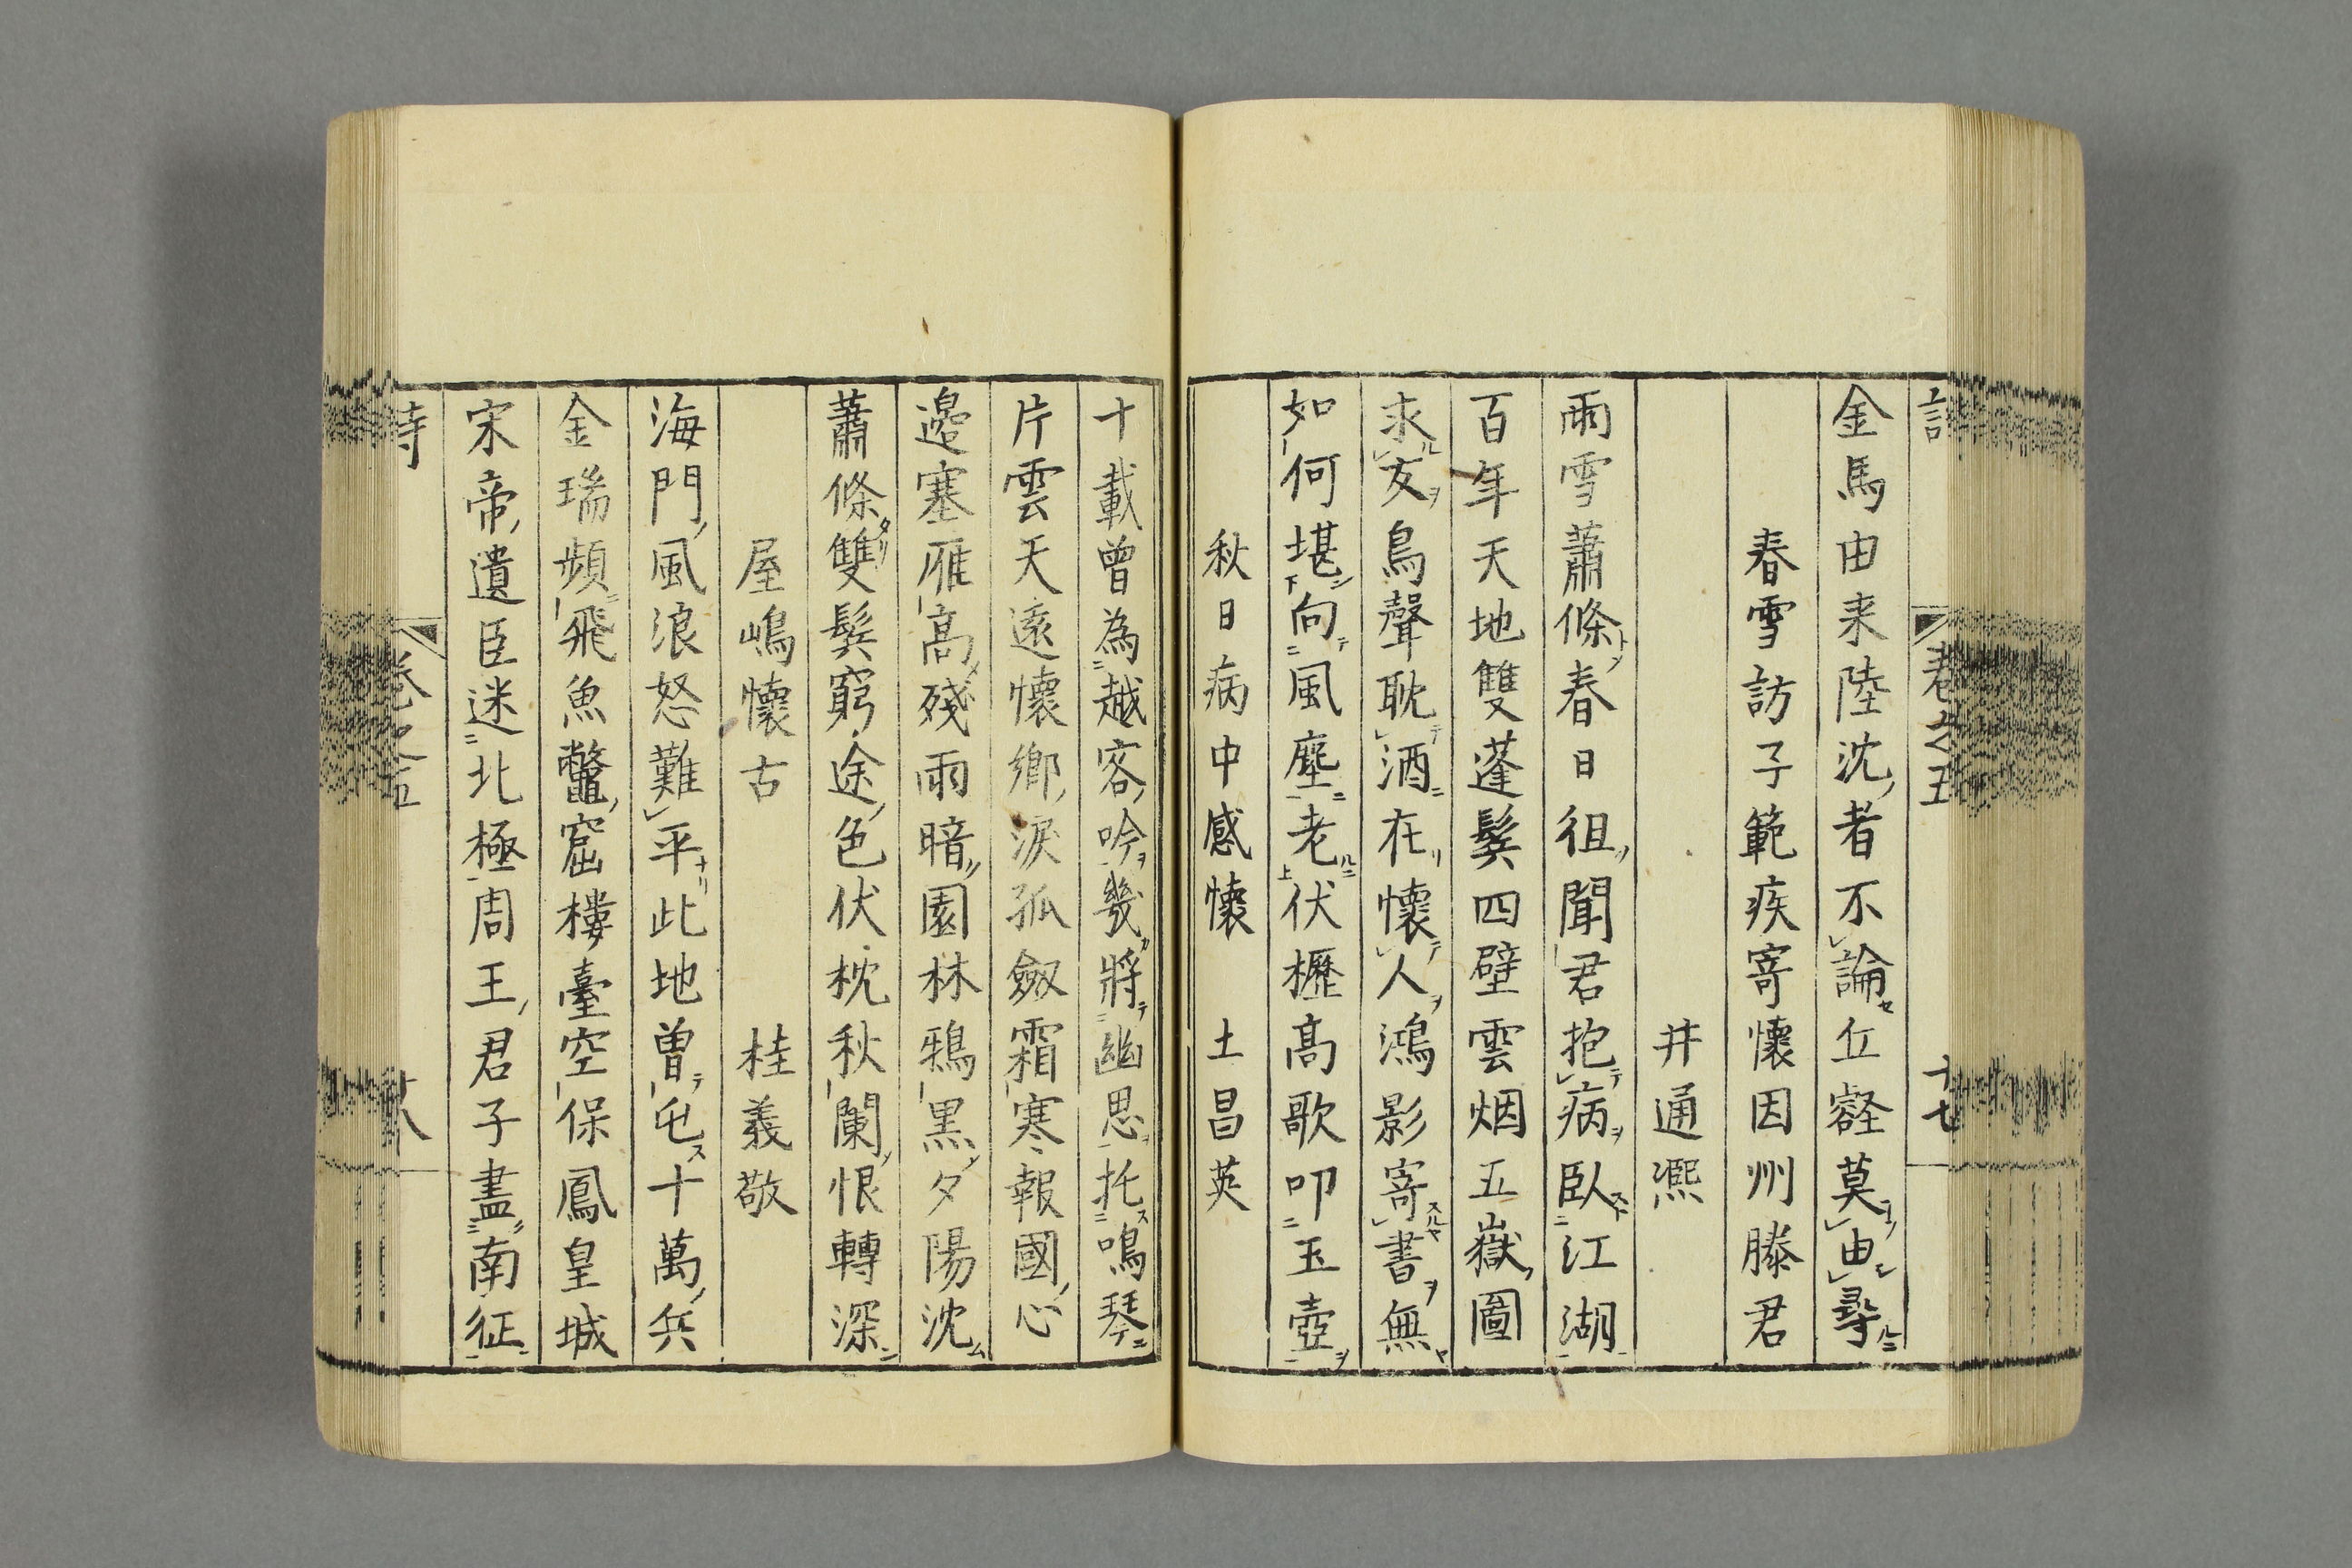 卷之五
十七
金馬由来陸沈者不論丘壑莫由尋
春雪訪子範疾寄懷因州滕君
井通熈
雨雪蕭條春日徂聞君抱病臥江湖
百年天地雙蓬鬂四壁雲烟五嶽圖
求友鳥聲耽酒在懷人鴻影寄書無
如何堪向風塵老伏櫪高歌叩玉壺
秋日病中感懷 土昌英
十載曽為越客吟幾將幽思托鳴琴
片雲天遠懷鄉淚孤劔霜寒報國心
邊塞雁高殘雨暗園林鴉黒夕陽沈
蕭條雙鬂窮途色伏枕秋闌恨轉深
屋嶋懷古 桂義敬
海門風浪怒難平此地曽屯十萬兵
金瑞頻飛魚鼈窟樓臺空保鳳皇城
宋帝遺臣迷北極周王君子盡南征
詩
卷之五
十八